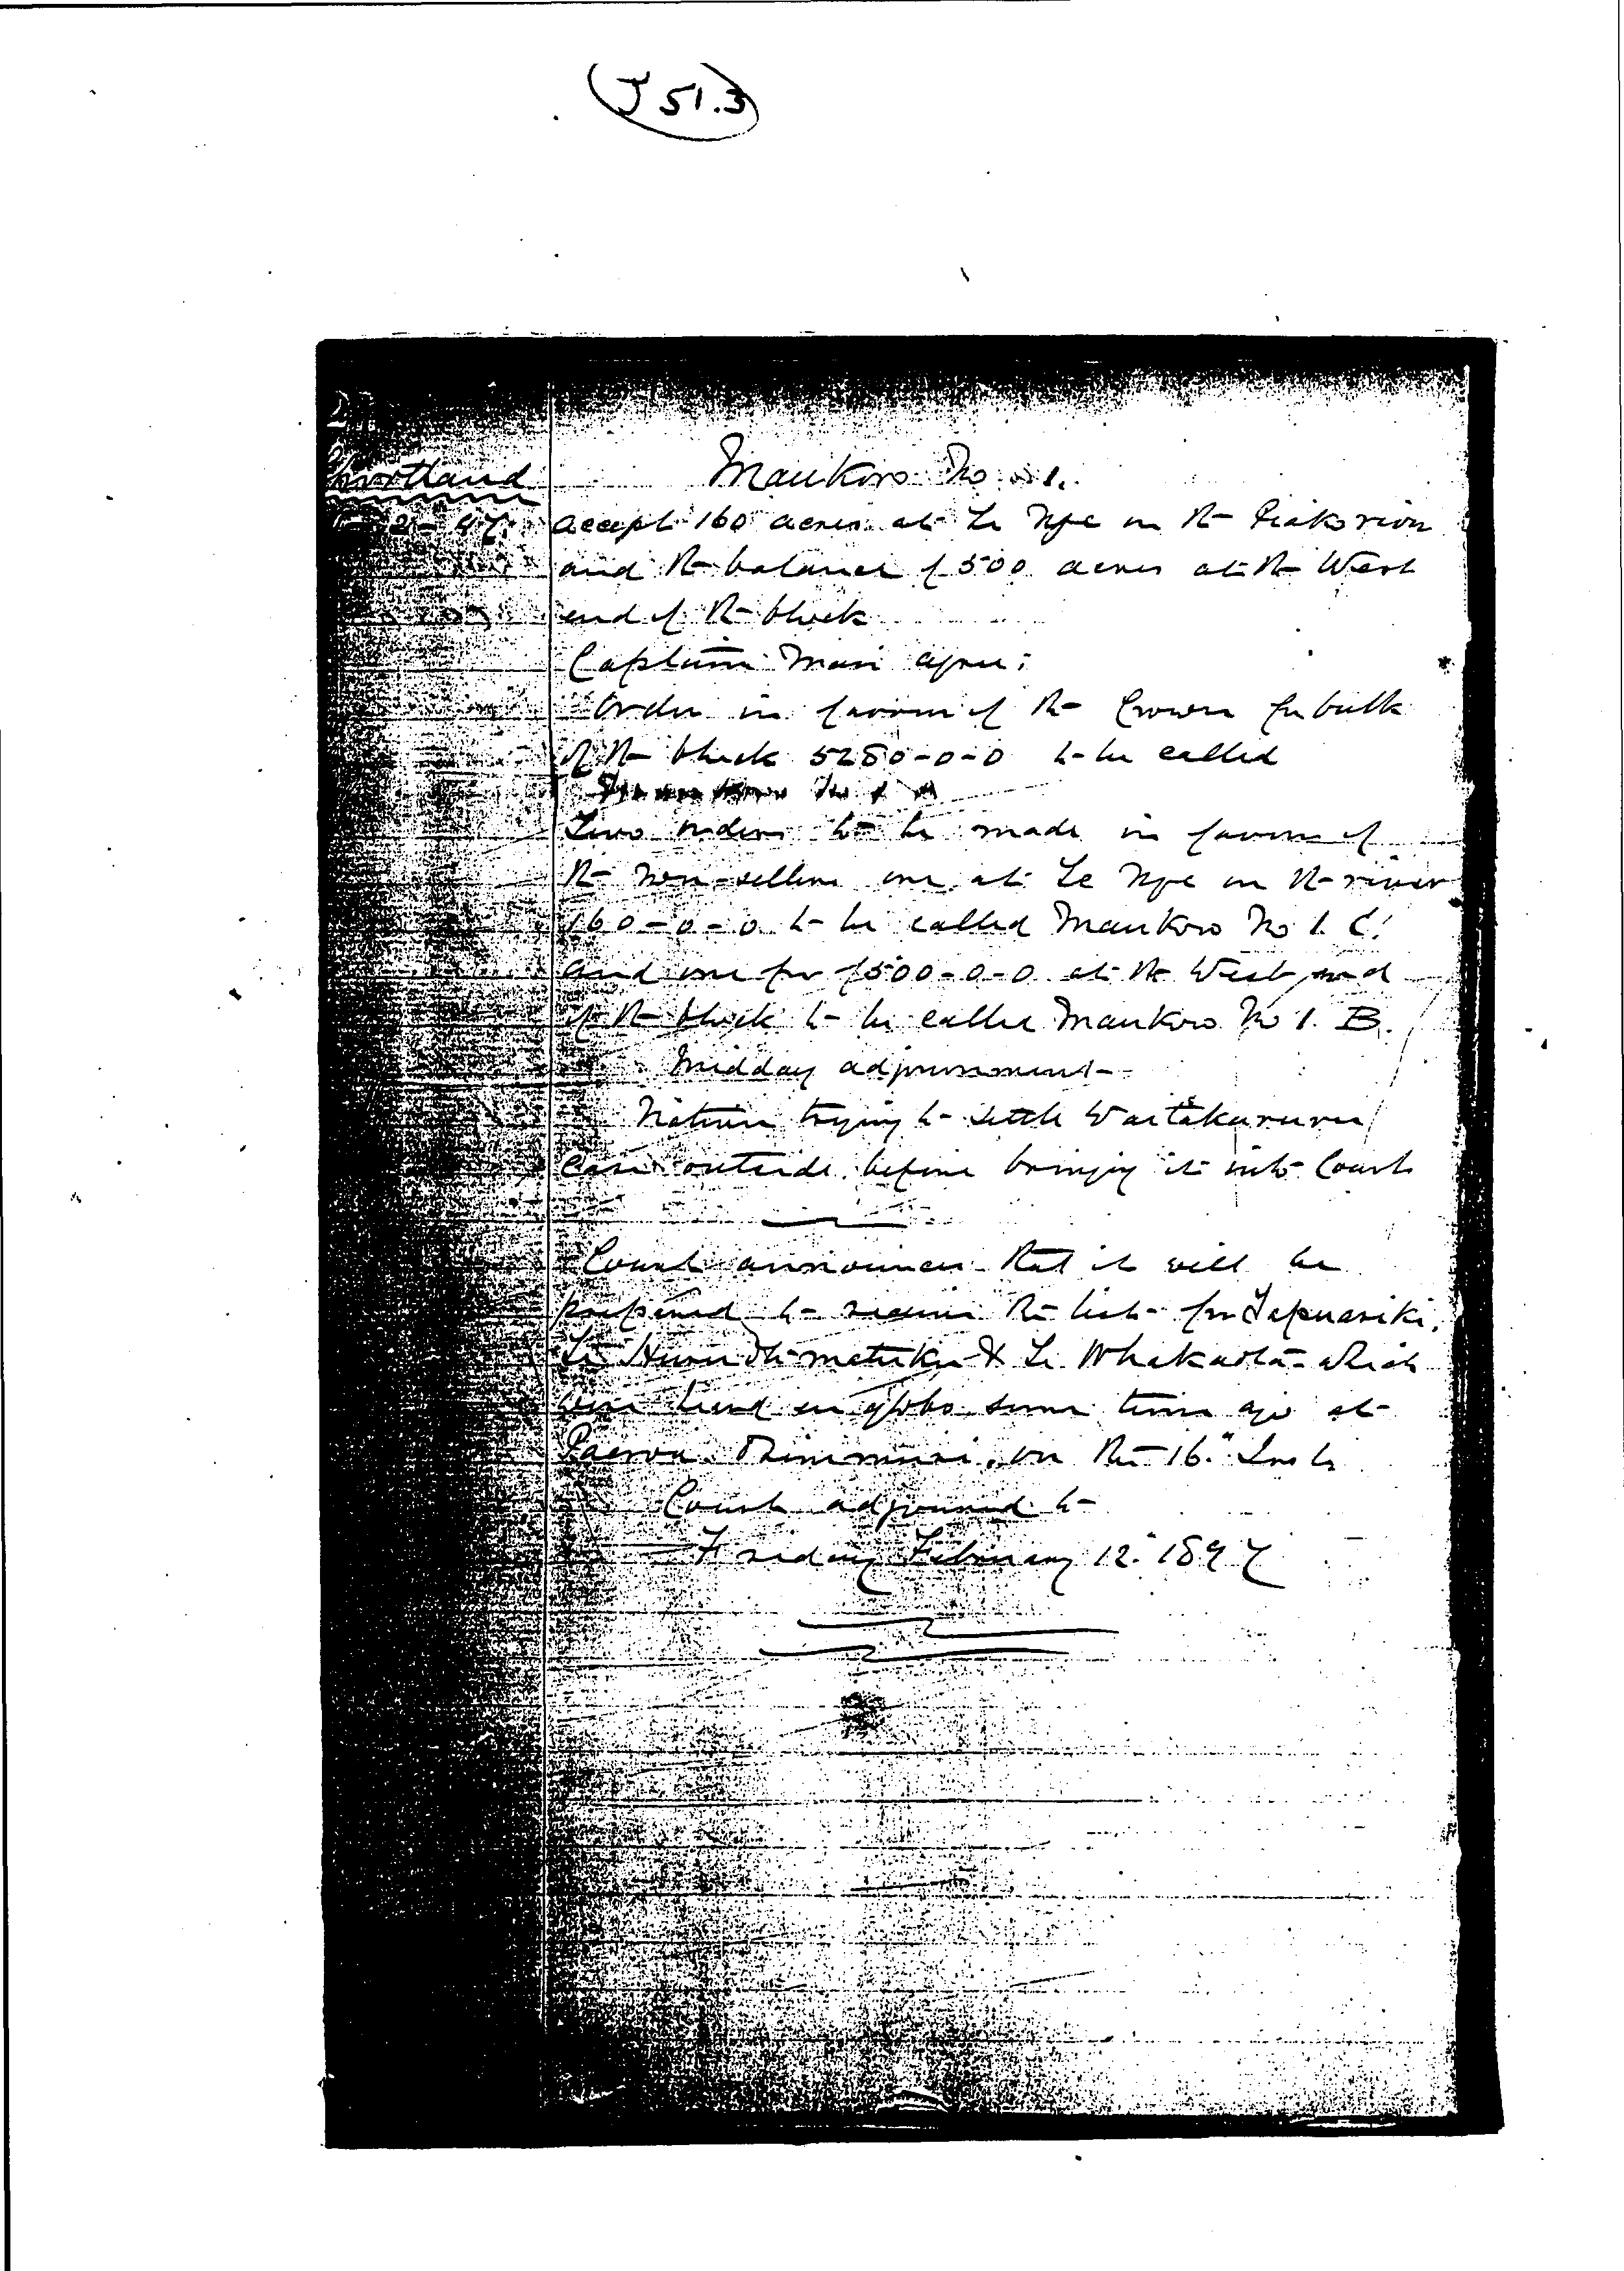 J 51.3
Shortland
Maukoro No 1.
2-97. accept 160 acres at Te on the Piako river
and the balance 1500 acres at the West
end of the block
Captain Mair agrees
Order in favour of the Crown for bulk
of the block 5280-0-0 to be called
Two orders to be made in favour of
the Non-sellers one at Te on the river
160-0-0 to be called Maukoro No 1. C.
and one for 1500-0-0 at the West end
of the block to be called Maukoro No 1. B.
Midday adjournment
Natives trying to settle Waitakaruru
case outside before bringing it into Court
Court announces that it will be
prepared to receive the lists for
Te & Te which
were heard in globo some time ago at
Paeroa on the 16th Inst
Court adjourned to
Friday February 12th 1897